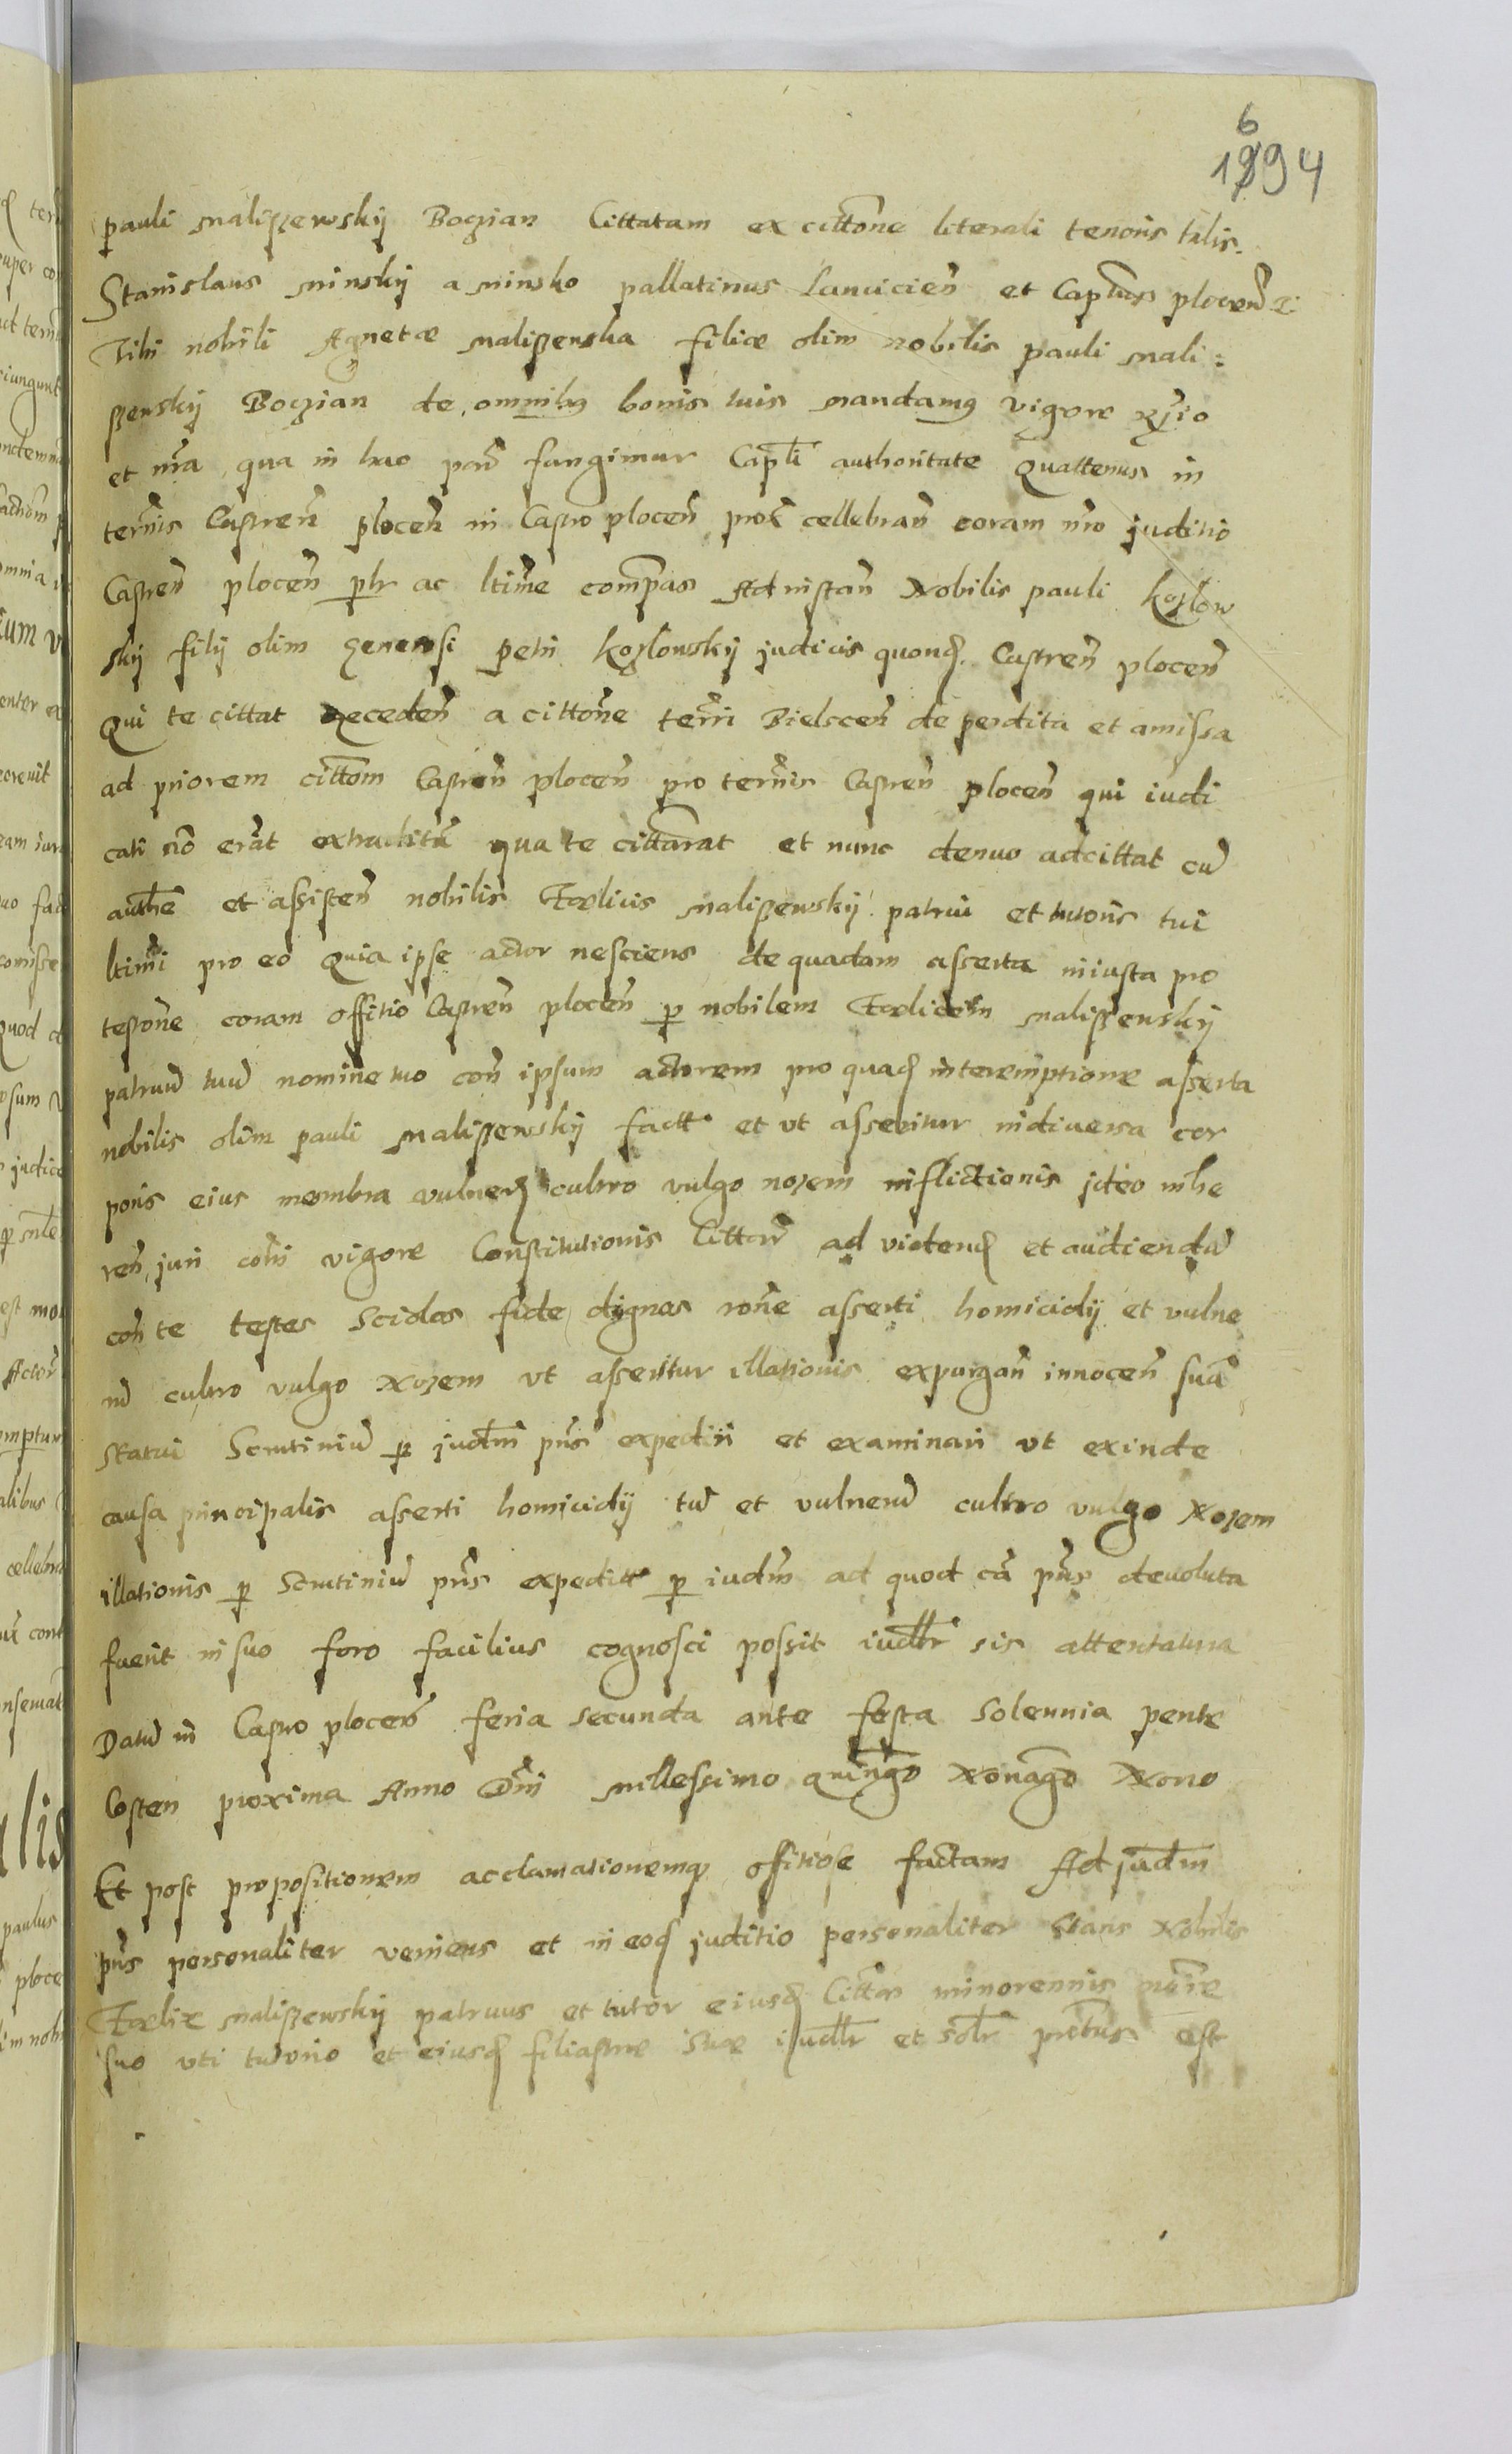 6
1894
pauli Maliszewskij Boczian Cittatam ex cittone literali tenoris talis.
Stanislaus Minskij a Minsko pallatinus Lancicien et Captneus plocen etc
Tibi nobili Agnetæ Maliszewska filiæ olim nobilis pauli Mali:
szewskij Boczian de omnibus bonis tuis mandamus vigore
et nra qua in hac parte fungimur Capli authoritate Quattenus in
terminis Castren plocen in Castro plocen prox cellebran coram nro juditio
Castren plocen plr ac ltime compareas Ad instan Nobilis pauli Kozlow
skij filij olim generosi petri Kozlowskij judicis quond Castren plocen
Qui te cittat Recedens a cittone terri Bielscen de perdita et amissa
ad priorem cittom Castren plocen pro terminis Castren plocen qui iudi
cati no erat extraditu qua te cittarat et nunc denuo adcittat cu
authe et assisten nobilis Fœlicis Maliszewskij patrui et tutoris tui
ltimi pro eo Quia ipse actor nesciens de quadam asserta iniusta pro
testone coram offitio Castren plocen p nobilem Fœlicem Maliszewskij
patruu tuu nomine tuo con ipsum actorem pro quad interemptione asserta
nobilis olim pauli Maliszewskij fact et ut asseritur in diversa cor
poris eius membra vulner cultro vulgo nozem inflictionis ideo inhe
ren juri coni vigore Constitutionis Cittaris ad videnq et audiendu
con te testes Scidos fide dignos rone asserti homicidij et vulne
ru cultro vulgo Nozem ut asseritur illationis expurgan innocen sua
Statui Scrutiniu p judm pns expediri et examinari ut exinde
causa principalis asserti homicidij tu et vulneru cultro vulgo Nozem
illationis p Scrutiniu pns expedit p iudm ad quod ca pns devoluta
fuerit in suo foro facilius cognosci possit iudlr sis attentatura
Datu in Castro plocen feria secunda ante festa Solennia pente
Costen proxima Anno Dni Millessimo Quingo Nonago Nono
Et post propositionem acclamationemq offitiose factam Ad judm
pns personaliter veniens et in eod juditio personaliter Stans Nobilis
Fœlix Maliszewskij patruus et tutor eiusd Cittæ minorennis noie
suo uti tutorio et eiusd filiastræ Suæ iudlr et solr ptus est